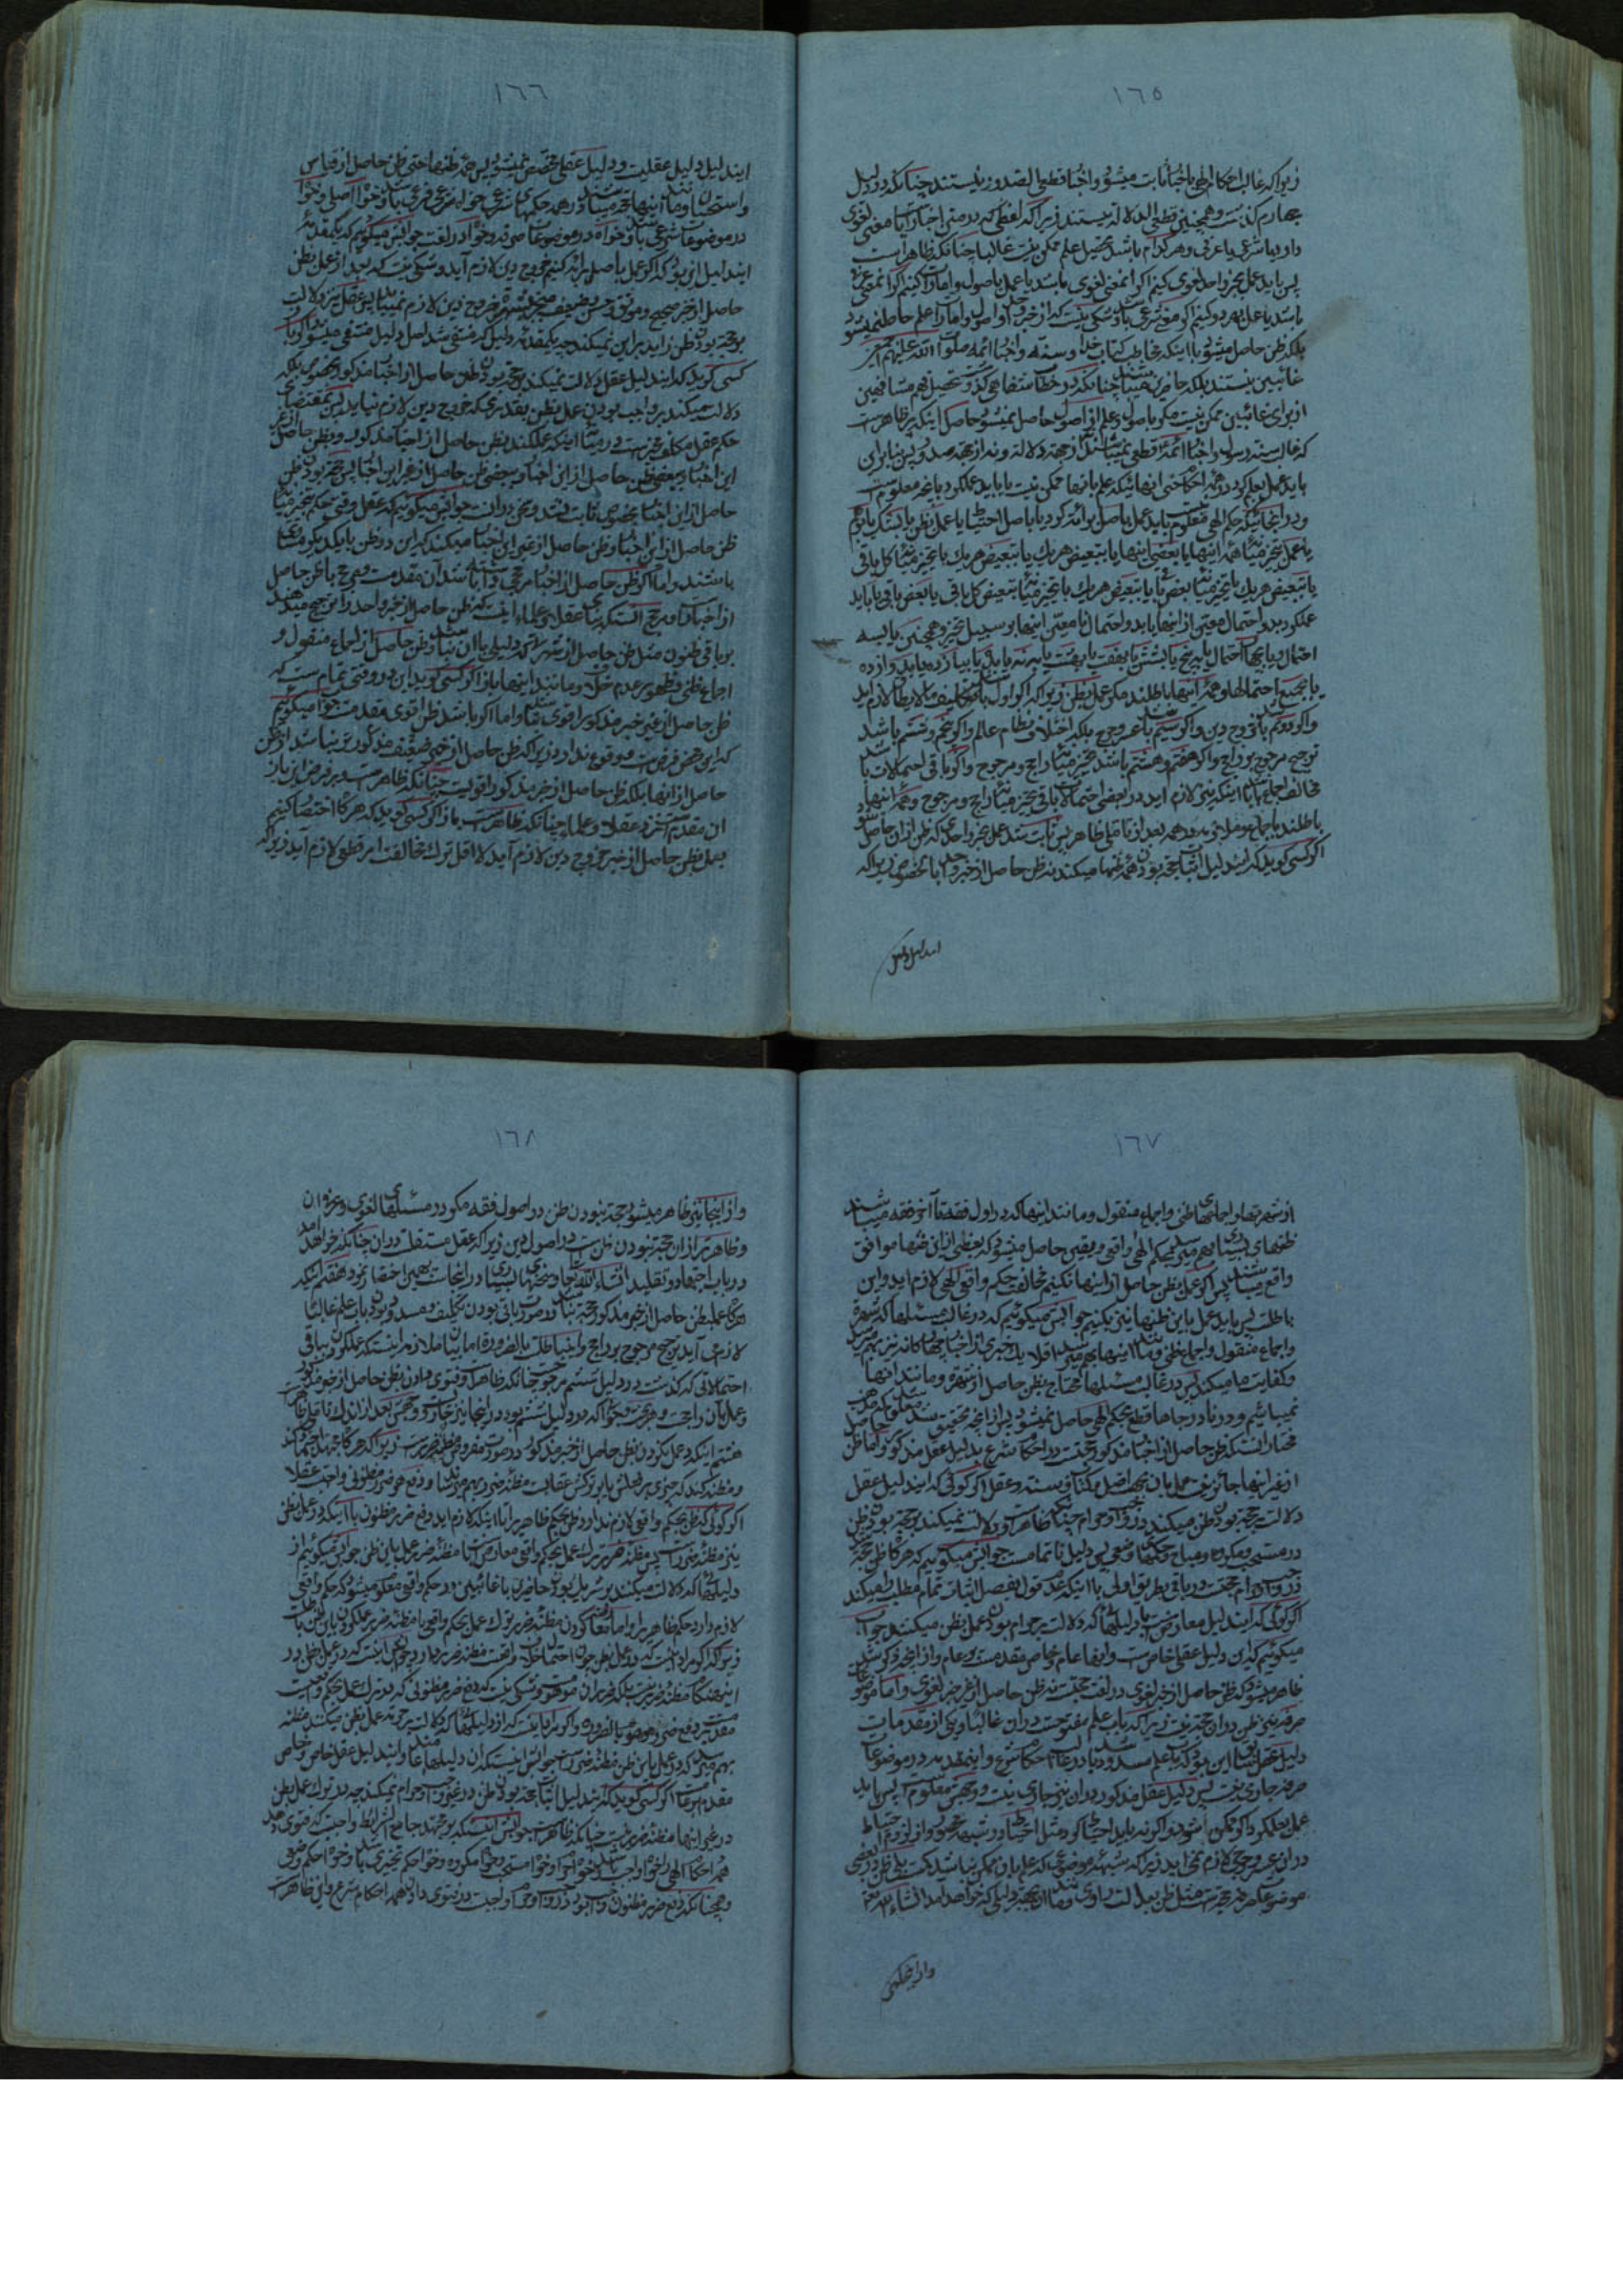 ١٦٥
زیراکه غالب احکام الهی باخبار ثابت میشود و اخبار قطعی الصدور نیستند چنانکه در دلیل
چهارم گذشت و همچنین قطعی الدلاله نیستند زیراکه لفظی که در متن اخبار است یا معنی لغوی
دارد یا شرعی یا عرفی و هر کدام باشد تحصیل علم ممکن نیست غالبا چنانکه ظاهر است
پس باید عمل بخبر واحد لغوی کنیم اگر بمعنی لغوی باشد یا عمل باصول و امارات کنیم اگر بمعنی عرفی
باشد یا عمل بهر دو کنیم اگر معنی شرعی باشد و شکی نیست که از خبر واحد و اصول و امارات علم حاصل نمیشود
بلکه ظن حاصل میشود با اینکه مخاطب کتاب خدا و سنة و اخبار ائمه صلوات الله علیهم اجمعین
غائبین نیستند بلکه حاضرین میباشند چنانکه در خطاب شفاهی گذشت و تحصیل فهم مشافهین
از برای غائبین ممکن نیست مگر باصول و علم از اصول حاصل نمیشود حاصل اینکه پر ظاهر است
که غالب سنة رسول و اخبار ائمه قطعی نمیباشند نه از جهة دلالة و نه از جهة صدور پس بنابراین
باید عمل بعلم کرد در همه احکام حتی انهائیکه علم بانها ممکن نیست یا باید عمل کرد بانچه معلوم است
و در انهائیکه حکم الهی معلوم نیست باید عمل باصل برائة کرد یا باصل احتیاط یا عمل بظن یا بشک یا بوهم
یا عمل بتخییر میان همه اینها یا بعضی اینها یا بتبعیض هر یک یا بتبعیض هر یک یا بتخییر میان کل باقی
یا بتبعیض هر یک یا بتخییر میان بعض باقی یا بتبعیض هر یک یا بتخییر میان تبعیض کل باقی یا بعض باقی یا باید
عمل کرد بدو احتمال معین از اینها یا بدو احتمال نا معین اینها بر سبیل تخییر و همچنین یا بسه
احتمال و یا بچهار احتمال یا به پنج یا بشش یا بهفت یا بهشت یا به نه یا بده یا بیازده یا بدوازده
یا بجمیع احتمالها و همه اینها باطلند مگر عمل بظن زیراکه اگر اول باشد تکلیف ما لا یطاق لازم اید
و اگر دوم باشد خروج دین و اگر سیم باشد عسر و حرج بلکه اختلال نظام عالم و اگر پنجم و ششم باشد
ترجیح مرجوح بر راجح و اگر هفتم و هشتم باشد تخییر میان راجح و مرجوح و اگر باقی احتمالات باشد
مخالف اجماع باشد با اینکه نیز لازم اید در بعضی احتمالات باقی تخییر میان راجح و مرجوح و همه اینها
باطلند باجماع و ملاحظه بعد از تامل ظاهر پس ثابت شد عمل بخبر واحدی که ظن از ان حاصل شود
اگر کسی گوید که ایندلیل اثبات حجة بودن همه ظنها میکند نه ظن حاصل از خبر واحد بالخصوص زیراکه
ایندلیل دلیل
١٦٦
ایندلیل دلیل عقلیست و دلیل عقلی مخصص نمیشود پس همه ظنها حتی ظن حاصل از قیاس
و استحسان و مانند اینها حجة میباشند در همه حکمهای شرعی خواه شرعی فرعی باشد و خواه اصلی و خواه
در موضوعات شرعی باشد و خواه در موضوعات صرفه و خواه در لغت جوابش میگوئیم که یک مقدمه
ایندلیل این بود که اگر عمل باصل برائة کنیم خروج دین لازم آید و شکی نیست که بعد از عمل بظن
حاصل از خبر صحیح و موثق و حسن و ضعیف منجبر بشهرة خروج دین لازم نمیباید پس عقل نیز دلالت
بر حجة بودن ظن زاید بر این نمیکند چه یک مقدمه دلیل که منتفی شد اصل دلیل منتفی میشود اگر باز
کسی گوید که ایندلیل عقل دلالت نمیکند بر حجة بودن ظن حاصل از اخبار مذکوره بخصوص بلکه
دلالت میکند بر واجب بودن عمل بظن بقدری که خروج دین لازم نیاید پس بمقتضای
حکم عقل مکلف مخیر است در میان اینکه عمل کند بظن حاصل از اخبار مذکوره و بظن حاصل از غیر
این اخبار و ببعضی ظن حاصل از این اخبار و ببعضی ظن حاصل از غیر این اخبار پس حجة بودن ظن
حاصل از این اخبار بخصوص ثابت نشد و سخن در ان است جوابش میگوئیم که عقل وقتی حکم بتخییر میان
ظن حاصل از این اخبار و ظن حاصل از غیر این اخبار میکند که این دو ظن با یکدیگر مساوی
باشند و اما اگر ظن حاصل از اخبار مرجحی داشته باشد آن مقدم است و مرجح با ظن حاصل
از اخبار است و مرجح آنست که بنای عقلا و علماء اینست که ظن حاصل از خبر واحد را ترجیح میدهند
بر باقی ظنون مثل ظن حاصل از شهرة که دلیلی با ان نباشد و ظن حاصل از اجماع منقول و
اجماع ظنی و ظهور عدم خلاف و مانند اینها باز اگر کسی گوید این در وقتی تمام است که
ظن حاصل از غیر خبر مذکور اقوی نباشد و اما اگر باشد ظن اقوی مقدم است جوابش میگوئیم
که این محض فرض است و وقوع ندارد زیراکه ظن حاصل از خبر ضعیف مذکور تر نباشد از ظن
حاصل از انها بلکه ظن حاصل از خبر مذکور اقویست چنانکه ظاهر است و بر فرض این باز
ان مقدم است نزد عقلا و علماء چنانکه ظاهر است باز اگر کسی گوید که هرگاه اختصار کنیم
بعمل بظن حاصل از خبر خروج دین لازم آید لا اقل ترک مخالفت امر قطعی لازم آید زیراکه
١٦٧
از شهرتها و اجماعهای ظنی و اجماع منقول و مانند اینها که در اول فقه تا آخر فقه میباشند
ظنهای بسیاری بهم میرسد بحکم الهی واقعی و یقین حاصل میشود که بعضی از این ظنها موافق
واقع میباشند پس اگر عمل بظن حاصل از اینها نکنیم مخالفت حکم واقعی الهی لازم اید و این
باطلست پس باید عمل باین ظنها نیز بکنیم جوابش میگوئیم که در غالب مسئلها که شهرة
و اجماع منقول و اجماع ظنی و مانند اینها بهم میرسد اقلا یک خبری از اخبار چهارگانه نیز بهم میرسد
و کفایت ما میکند پس در غالب مسئلها محتاج بظن حاصل از شهرة و مانند انها
نمیباشیم و در نادر جاها قطع بحکم الهی حاصل نمیشود پس از انچه تحقیق شد معلوم شد که مذهب
مختار انست که ظن حاصل از اخبار مذکوره حجت است در احکام شرع بدلیل عقل مذکور و اما ظن حاصل
از غیر اینها جائز نیست عمل بان بجهة اصل و کتاب و سنة و عقل اگر گوئی که ایندلیل عقل
دلالت بر حجة بودن ظن میکند در واجب و حرام چنانکه ظاهر است و دلالت نمیکند بر حجة بودن ظن
در مستحب و مکروه و مباح و حکمهای وضعی پس دلیل ناتمامست جوابش میگوئیم که هرگاه ظن حجة
در واجب و حرام حجت در باقی بطریق اولی با اینکه عدم قول بفصل اثبات تمام مطلب را میکند
اگر گوئی که ایندلیل معارض است با دلیلهائی که دلالت بر حرام بودن عمل بظن میکنند جواب
میگوئیم که این دلیل عقلی خاص است و انها عام و خاص مقدم است بر عام و از انچه ذکر شد
ظاهر میشود که ظن حاصل از خبر لغوی در لغت حجت است نه ظن حاصل از غیر خبر لغوی و اما موضوعات
صرفه پس ظن در ان حجة نیست زیراکه باب علم مفتوحست در ان غالبا و یکی از مقدمات
دلیل عقل سابق این بود که باب علم مسدود باشد در غالب احکام شرع و اینمقدمه در موضوعات
صرفه جاری نیست پس دلیل عقل مذکور در ان نیز جاری نیست و وجهش معلوم است پس باید
عمل بعلم کرد اگر ممکن شود و اگر نه باید احتیاط کرد مثل احتیاط در شبهه محصوره و از لزوم احتیاط
در ان عسر و حرجی لازم نمی اید زیراکه شبهه موضوعی که علم بان ممکن نباشد کمست بلی ظن در بعضی
موضوعات صرفه حجة است مثل ظن بعدالت راوی و مانند ان بجهة دلیلی که خواهد امد انشاء الله تعالی
و از اینجا نیز
١٦٨
و از اینجا نیز ظاهر میشود حجة نبودن ظن در اصول فقه مگر در مسئلهای لغوی و غیر ان
و ظاهرتر از ان حجة نبودن ظن است در اصول دین زیراکه عقل مستقل است در ان چنانکه خواهد امد
در باب اجتهاد و تقلید انشاء الله تعالی و سخنهای بسیاری در اینجاست بهمین اختصار نمود هفتم اینکه
هرگاه عمل بظن حاصل از خبر مذکور حجة نباشد در صورت باقی بودن تکلیف و مسدود بودن باب علم غالبا
لازم می آید ترجیح مرجوح بر راجح و این باطلست بالضروره اما بیان ملازمه اینستکه عمل کردن بباقی
احتمالاتی که گذشت در دلیل ششم مرجوحست چنانکه ظاهر است و فتوی دادن بظن حاصل از خبر مذکور
و عمل بآن راجحست و هر بحث و جوابی که در دلیل ششم بود در اینجا نیز جاریست و وجهش بعد از اندک تاملی ظاهر است
هشتم اینکه عمل نکردن بظن حاصل از خبر مذکور در صورت مفروضه مظنه ضرر است زیراکه هرگاه مجتهد اجتهاد کند
و مظنه کند که چیزی بر فعلش یا بر ترکش عقابست مظنه ضرر بهم میرساند و دفع ضرر مظنونی واجبست عقلا
اگر گوئی که ظن بحکم واقعی لازم ندارد ظن بحکم ظاهریرا با اینکه لازم اید دفع ضرر مظنون با اینکه در عمل بظن
نیز مظنه ضرر است پس مظنه ضرر ترک عمل بحکم واقعی معارض است با مظنه ضرر عمل باین ظن جوابش میگوئیم از
دلیلهائی که دلالت میکند بر شریک بودن حاضرین با غائبین در حکم واقعی معلوم میشود که حکم واقعی
لازم دارد حکم ظاهریرا و اما معارضه کردن مظنه ضرر ترک عمل بحکم واقعی با مظنه ضرر عمل کردن باین ظن باطلست
زیراکه اگر مراد اینست که در عمل بظن چون احتمال خلاف واقعست مظنه ضرر میباشد جوابش اینست که در عمل بظن در
اینهنگام مظنه ضرر نیست بلکه ضرر ان موهوم است و شکی نیست که دفع ضرر مظنونی که در ترک عمل بحکم واقعیست
مقدم است بر دفع ضرر موهوم بالضروره و اگر مراد اینست که از دلیلهائی که دلالت بر حرمة عمل بظن میکنند مظنه
بهم میرسد که در عمل باین ظن مظنه ضرر است جوابش اینستکه ان دلیلها عامند و ایندلیل عقل خاص و خاص
مقدم است بر عام اگر کسی گوید که ایندلیل اثبات حجة بودن ظن در غیر واجب و حرام نمیکند چه در ترک عمل بظن
در غیر اینها مظنه ضرر نیست چنانکه ظاهر است جوابش اینستکه بر مجتهد جامع الشرایط واجبست که فتوی دهد
همه احکام الهی را خواه واجب باشد و خواه حرام و خواه مستحب و خواه مکروه و خواه حکم تخییری باشد و خواه حکم وضعی
و همچنانکه دفع ضرر مظنون واجب بود در واجب و حرام واجبست در فتوی دادن همه احکام شرع و این ظاهر است